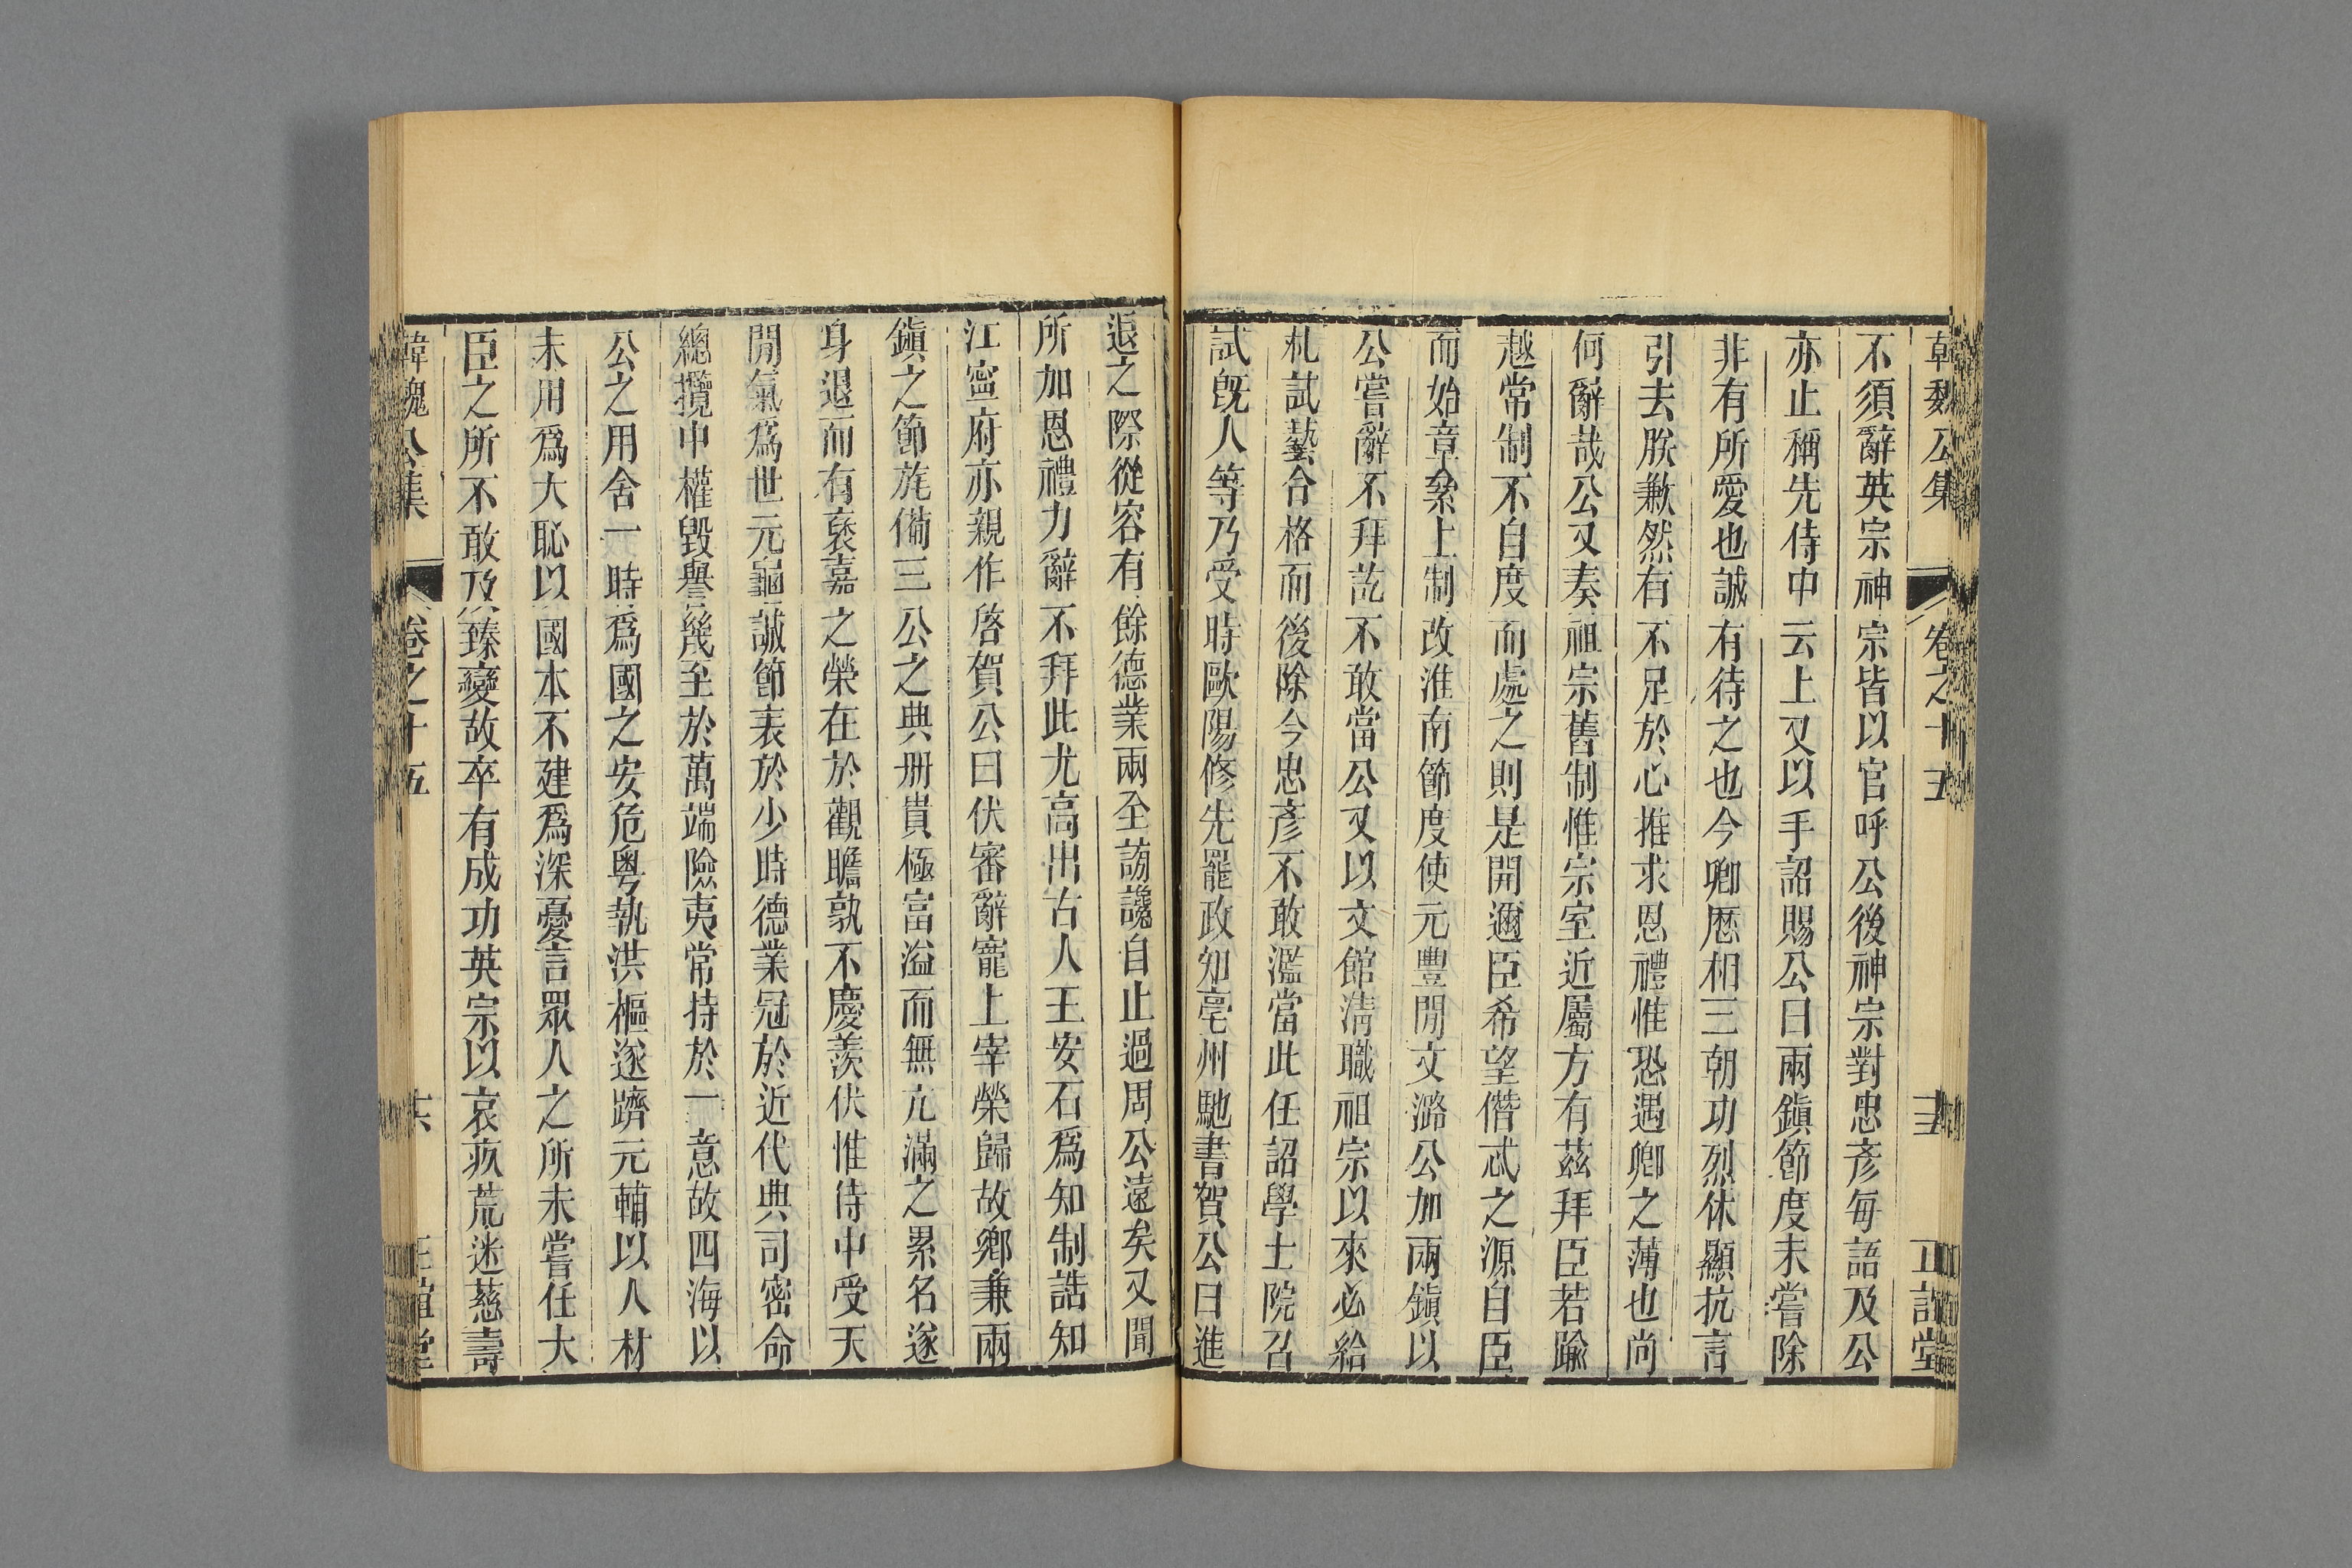 韓魏公集 卷之十五 三五 正誼堂
不須辭英宗神宗皆以官呼公後神宗對忠彥每語及公
亦止稱先侍中云上又以手詔賜公曰兩鎮節度未嘗除
非有所愛也誠有待之也今卿歴相三朝功烈休顯抗言
引去朕歉然有不足於心推求恩禮惟恐遇卿之薄也尚
何辭哉公又奏祖宗舊制惟宗室近屬方有茲拜臣若踰
越常制不自度而處之則是開邇臣希望僭忒之源自臣
而始章纍上制改淮南節度使元豐閒文潞公加兩鎮以
公嘗辭不拜訖不敢當公又以文館清職祖宗以來必給
札試藝合格而後除今忠彥不敢濫當此任詔學士院召
試旣人等乃受時歐陽修先罷政知亳州馳書賀公曰進
退之際從容有餘德業兩全謗讒自止過周公遠矣又聞
所加恩禮力辭不拜此尤高出古人王安石爲知制誥知
江寧府亦親作啓賀公曰伏審辭寵上宰榮歸故鄉兼兩
鎮之節旄備三公之典册貴極富溢而無亢滿之累名遂
身退而有褒嘉之榮在於觀瞻孰不慶羨伏惟侍中受天
閒氣爲世元龜誠節表於少時德業冠於近代典司密命
總攬中權毀譽幾至於萬端險夷常持於一意故四海以
公之用舍一時爲國之安危粤執洪樞遂躋元輔以人材
未用爲大恥以國本不建爲深憂言眾人之所未嘗任大
臣之所不敢及臻變故卒有成功英宗以哀疚荒迷慈壽
韓魏公集 卷之十五 六 正誼堂